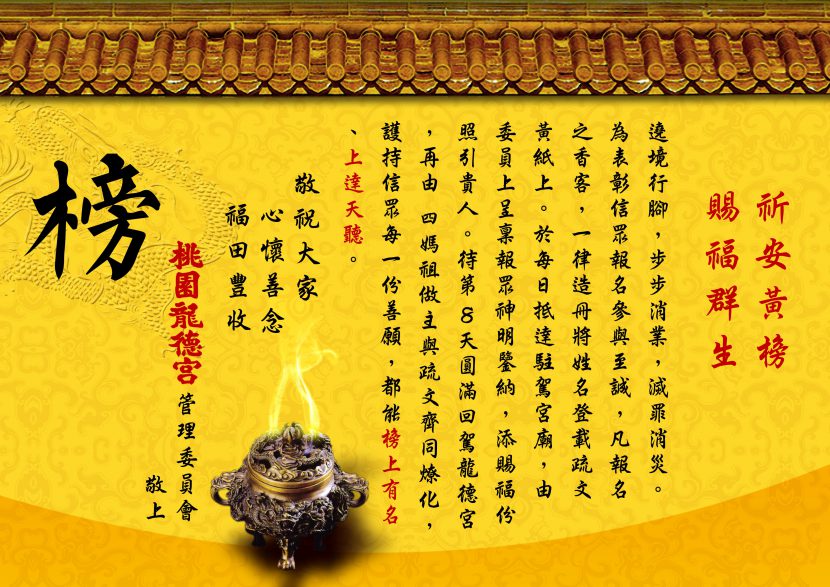 祈安黃榜
賜福群生
遶境行腳，步步消業，滅罪消災。
為表彰信眾報名參與至誠，凡報名
之香客，一律造冊將姓名登載疏文
黃紙上。於每日抵達駐駕宮廟，由
委員上呈稟報眾神明鑒納，添賜福份
照引貴人。待第8天圓滿回駕龍德宮
，再由 四媽祖做主與疏文齊同燎化，
護持信眾每一份善願，都能榜上有名
、上達天聽。
敬祝大家
心懷善念
福田豐收
桃園龍德宮 管理委員會
敬上
榜